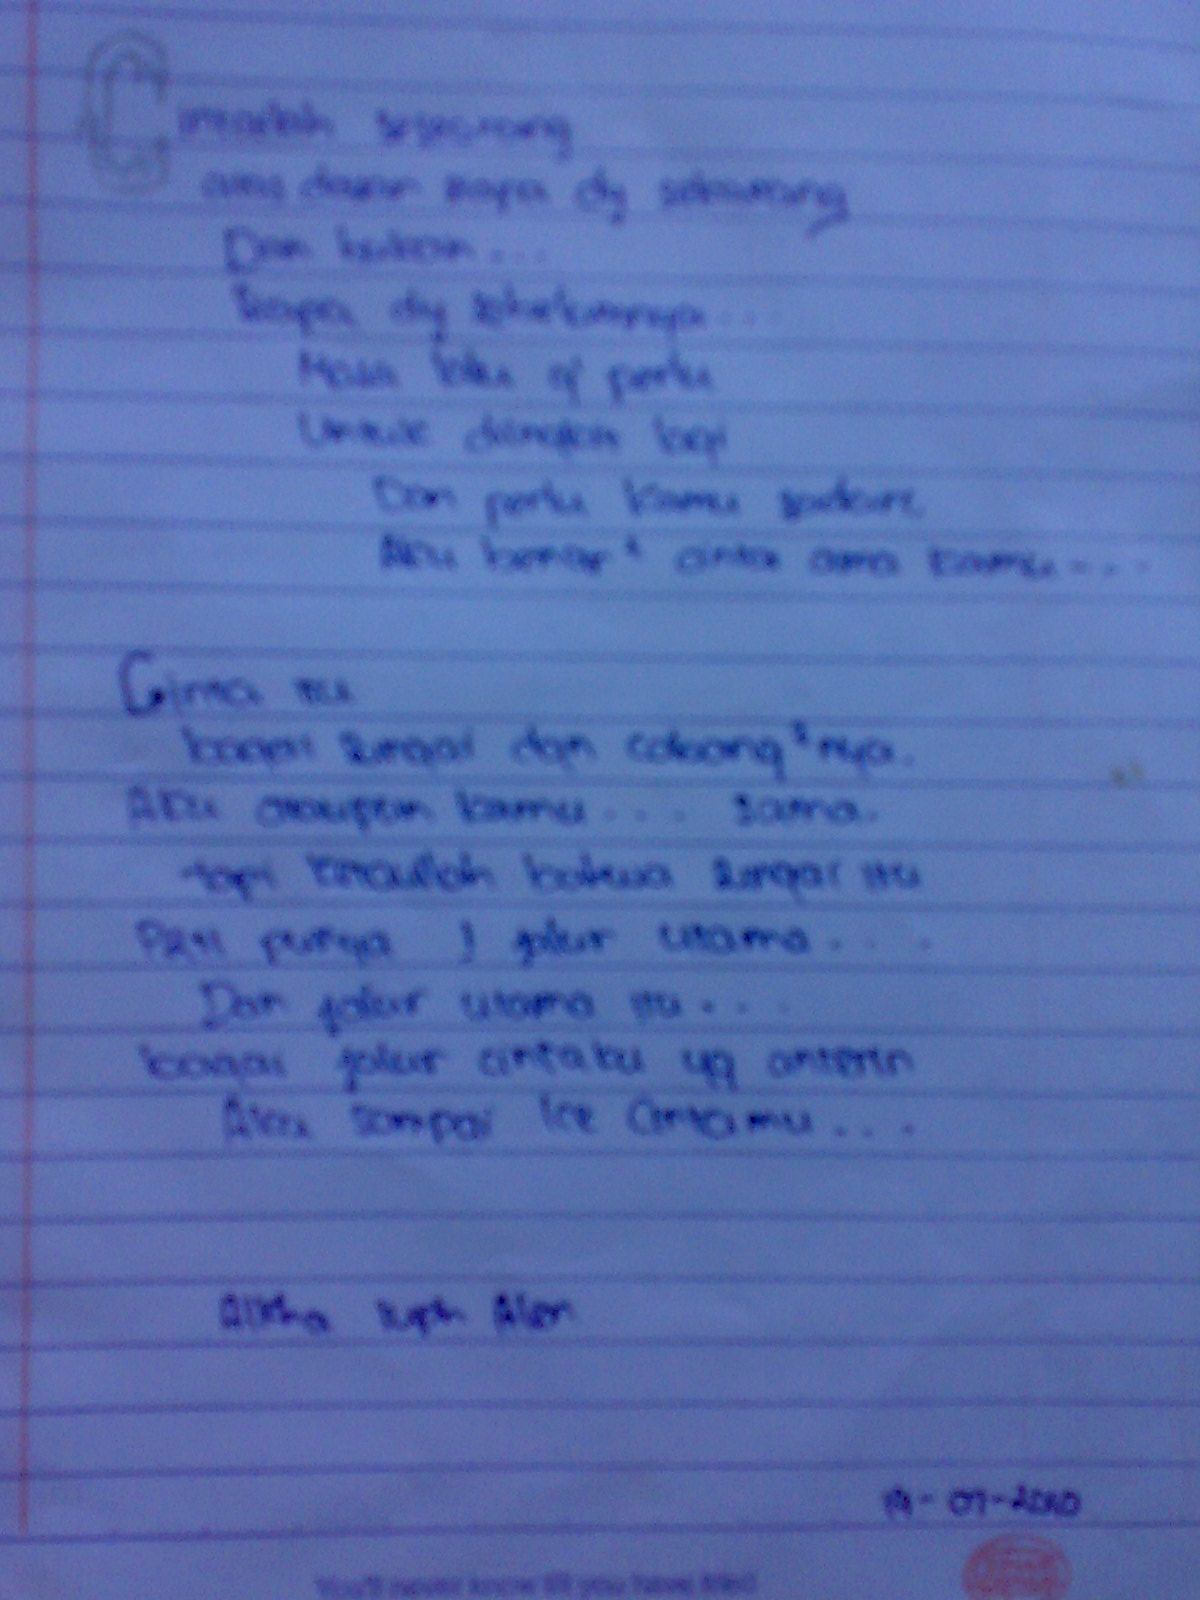 Cintailah seseorang
atas dasar siapa dy sekarang
Dan bukan...
Siapa dy sebelumnya...
Masa lalu g' perlu
Untuk diingat lagi
Dan perlu kamu sadari,
Aku benar² cinta ama kamu...
Cinta itu
bagai sungai dgn cabang²nya.
Aku ataupun kamu... sama.
tapi ingatlah bahwa sungai itu
Pasti punya 1 jalur utama...
Dan jalur utama itu...
bagai jalur cintaku yg anterin
Aku sampai ke cintamu...
Alen
-07-2010
You'll never know till you have tried